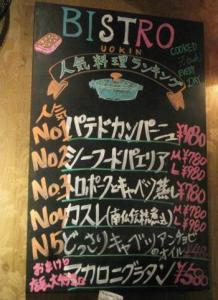 BISTRO
UOKIN
人気料理ランキング
COOKED
EVERY
DAY
人気
No1 パテドカンパーニュ ¥480
No2 シーフードパエリア M ¥780 L ¥980
No3 トロポークとキャベツ蒸し ¥780
No4 カスレ(南仏伝統煮込) ¥780 ¥980
N5 どっさりキャベツアンチョビのオイル
おまけ
マカロニグラタン ¥580